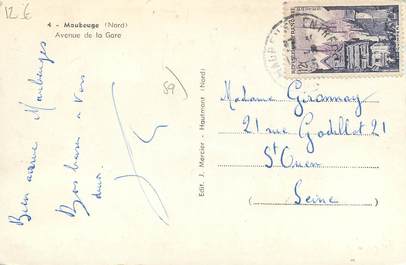 12 €
4 - Maubeuge (Nord)
Avenue de la Gare
59
Bien arrivée Maubeuges
Bos baisers a vous
deux.
Edit. J. Mercier - Hautmont (Nord)
Madame Girannay
21 rue Godillot 21
St Ouen
Seine